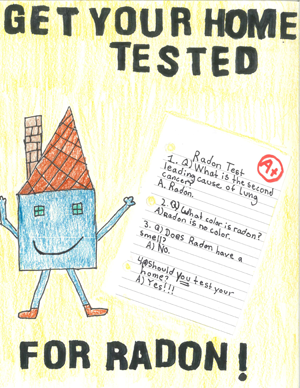 GET YOUR HOME
TESTED
A+
Radon Test
1. Q) What is the second
leading cause of lung
cancer?
A. Radon.
2. Q) What color is radon?
A) Radon is no color.
3. Q) Does Radon have a
smell?
A) No.
4Q) Should you test your
home?
A) Yes!!!
FOR RADON!